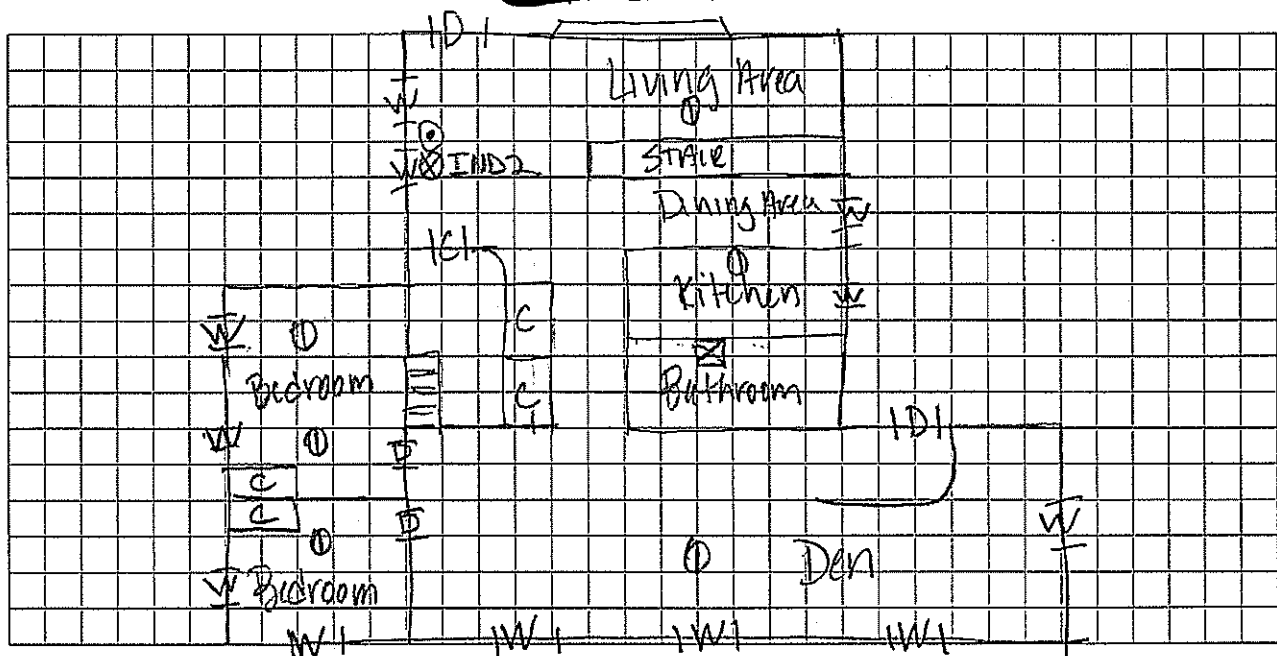 |D|
Living Area
W
W IND2
STAIR
Dining Area W
|C|
Kitchen W
C
W
Bedroom
C
Bathroom
W
D
|D|
C
C
D
W
Den
W Bedroom
|W| |W| |W| |W|